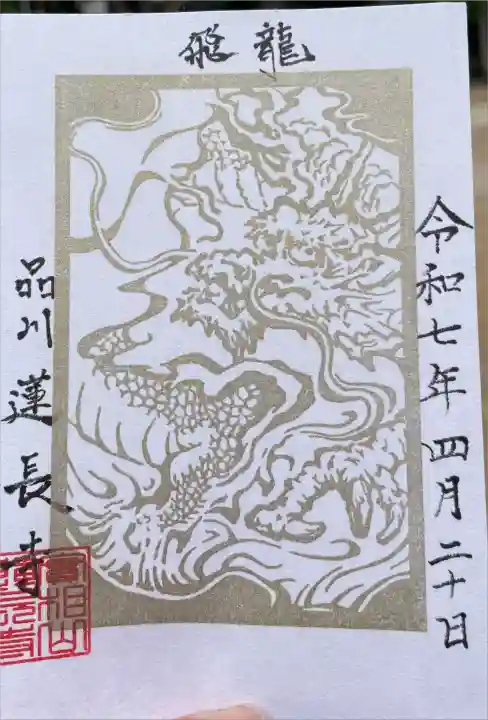 飛龍
令和七年四月二十日
品川 蓮長寺